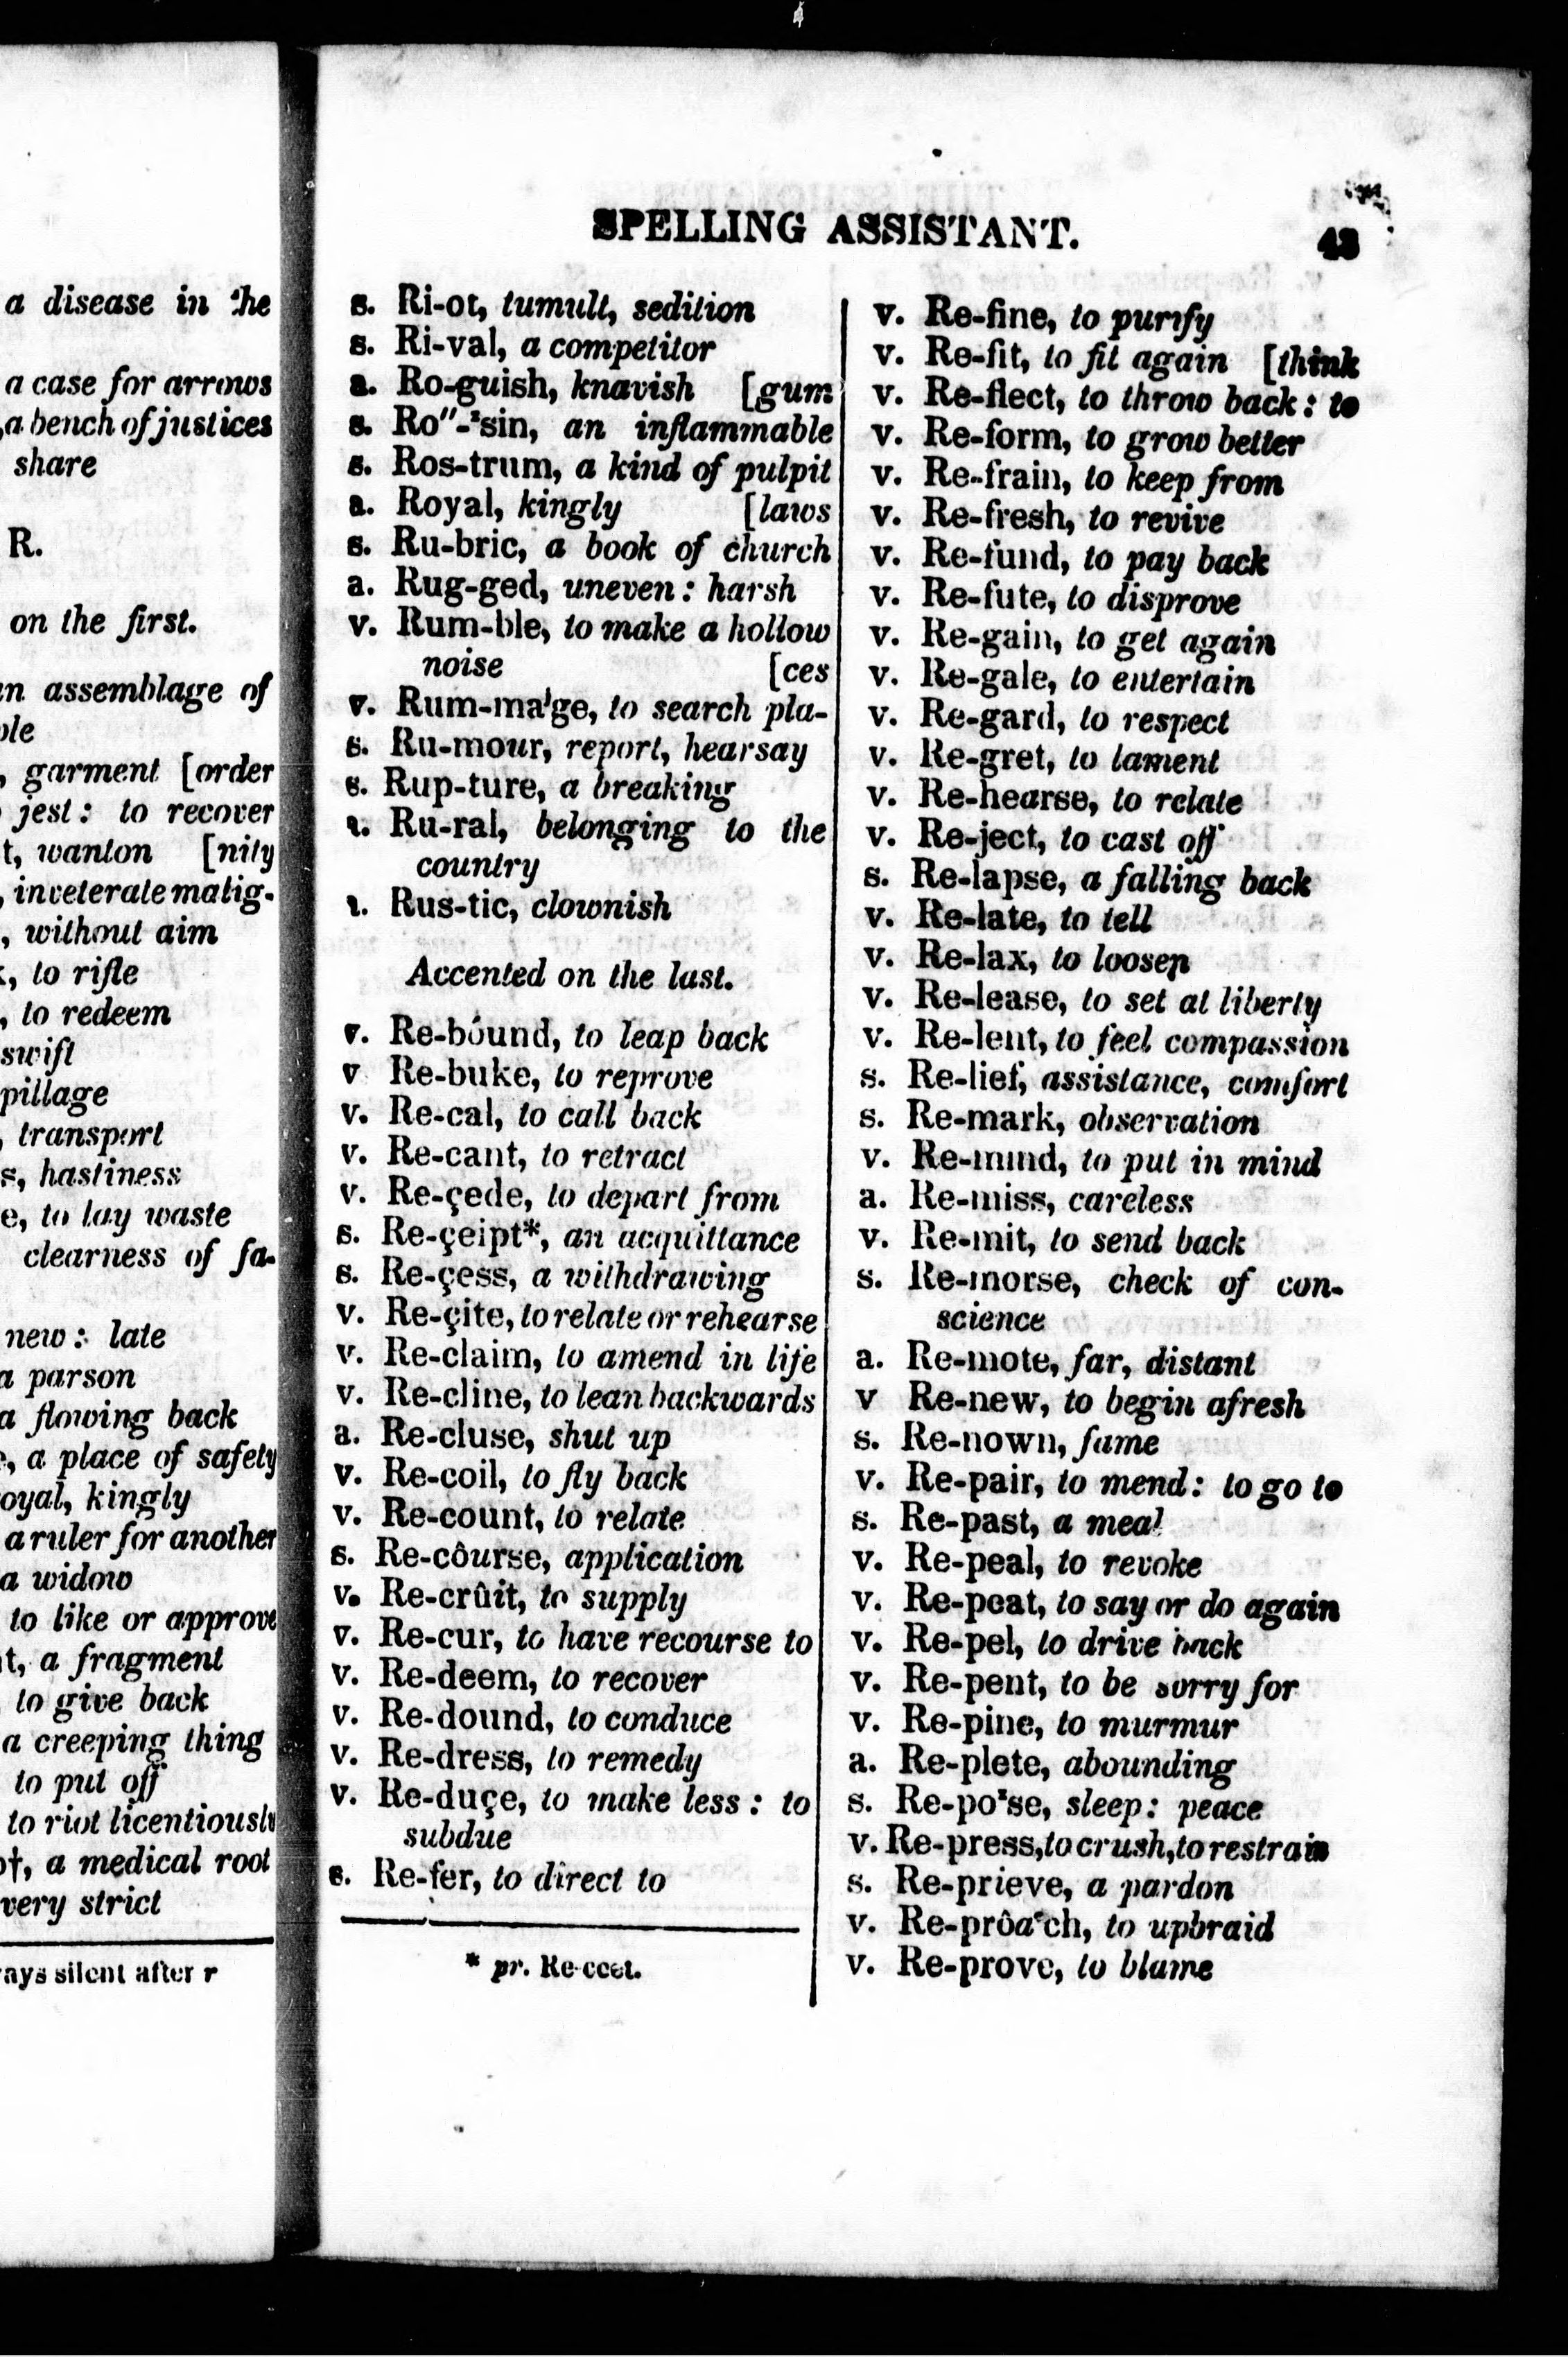 a disease in the
a case for arrows
,a bench of justices
share
R.
on the first.
assemblage of
, garment [order
jest: to recover
t, wanton [nity
, inveterate malig-
, without aim
, to rifle
, to redeem
swift
pillage
, transport
s, hastiness
e, to lay waste
clearness of fa-
new: late
a parson
a flowing back
, a place of safety
oyal, kingly
a ruler for another
a widow
to like or approve
t, a fragment
to give back
a creeping thing
to put off
to riot licentiously
†, a medical root
very strict
ays silent after r
SPELLING ASSISTANT. 43
s. Ri-ot, tumult, sedition
s. Ri-val, a competitor
a. Ro-guish, knavish [gum
s. Ro"-ᶻsin, an inflammable
s. Ros-trum, a kind of pulpit
a. Royal, kingly [laws
s. Ru-bric, a book of church
a. Rug-ged, uneven: harsh
v. Rum-ble, to make a hollow
noise [ces
v. Rum-maⁱge, to search pla-
s. Ru-mour, report, hearsay
s. Rup-ture, a breaking
a. Ru-ral, belonging to the
country
a. Rus-tic, clownish
Accented on the last.
v. Re-bóund, to leap back
v Re-buke, to reprove
v. Re-cal, to call back
v. Re-cant, to retract
v. Re-çede, to depart from
s. Re-çeipt*, an acquittance
s. Re-çess, a withdrawing
v. Re-çite, to relate or rehearse
v. Re-claim, to amend in life
v. Re-cline, to lean backwards
a. Re-cluse, shut up
v. Re-coil, to fly back
v. Re-count, to relate
s. Re-côurse, application
v. Re-crûit, to supply
v. Re-cur, to have recourse to
v. Re-deem, to recover
v. Re-dound, to conduce
v. Re-dress, to remedy
v. Re-duçe, to make less: to
subdue
s. Re-fer, to direct to
* pr. Re-ceet.
v. Re-fine, to purify
v. Re-fit, to fit again [think
v. Re-flect, to throw back: to
v. Re-form, to grow better
v. Re-frain, to keep from
v. Re-fresh, to revive
v. Re-fund, to pay back
v. Re-fute, to disprove
v. Re-gain, to get again
v. Re-gale, to entertain
v. Re-gard, to respect
v. Re-gret, to lament
v. Re-hearse, to relate
v. Re-ject, to cast off
s. Re-lapse, a falling back
v. Re-late, to tell
v. Re-lax, to loosen
v. Re-lease, to set at liberty
v. Re-lent, to feel compassion
s. Re-lief, assistance, comfort
s. Re-mark, observation
v. Re-mind, to put in mind
a. Re-miss, careless
v. Re-mit, to send back
s. Re-morse, check of con-
science
a. Re-mote, far, distant
v Re-new, to begin afresh
s. Re-nown, fame
v. Re-pair, to mend: to go to
s. Re-past, a meal
v. Re-peal, to revoke
v. Re-peat, to say or do again
v. Re-pel, to drive back
v. Re-pent, to be sorry for
v. Re-pine, to murmur
a. Re-plete, abounding
s. Re-poᶻse, sleep: peace
v. Re-press, to crush, to restrain
s. Re-prieve, a pardon
v. Re-prôaᶜch, to upbraid
v. Re-prove, to blame